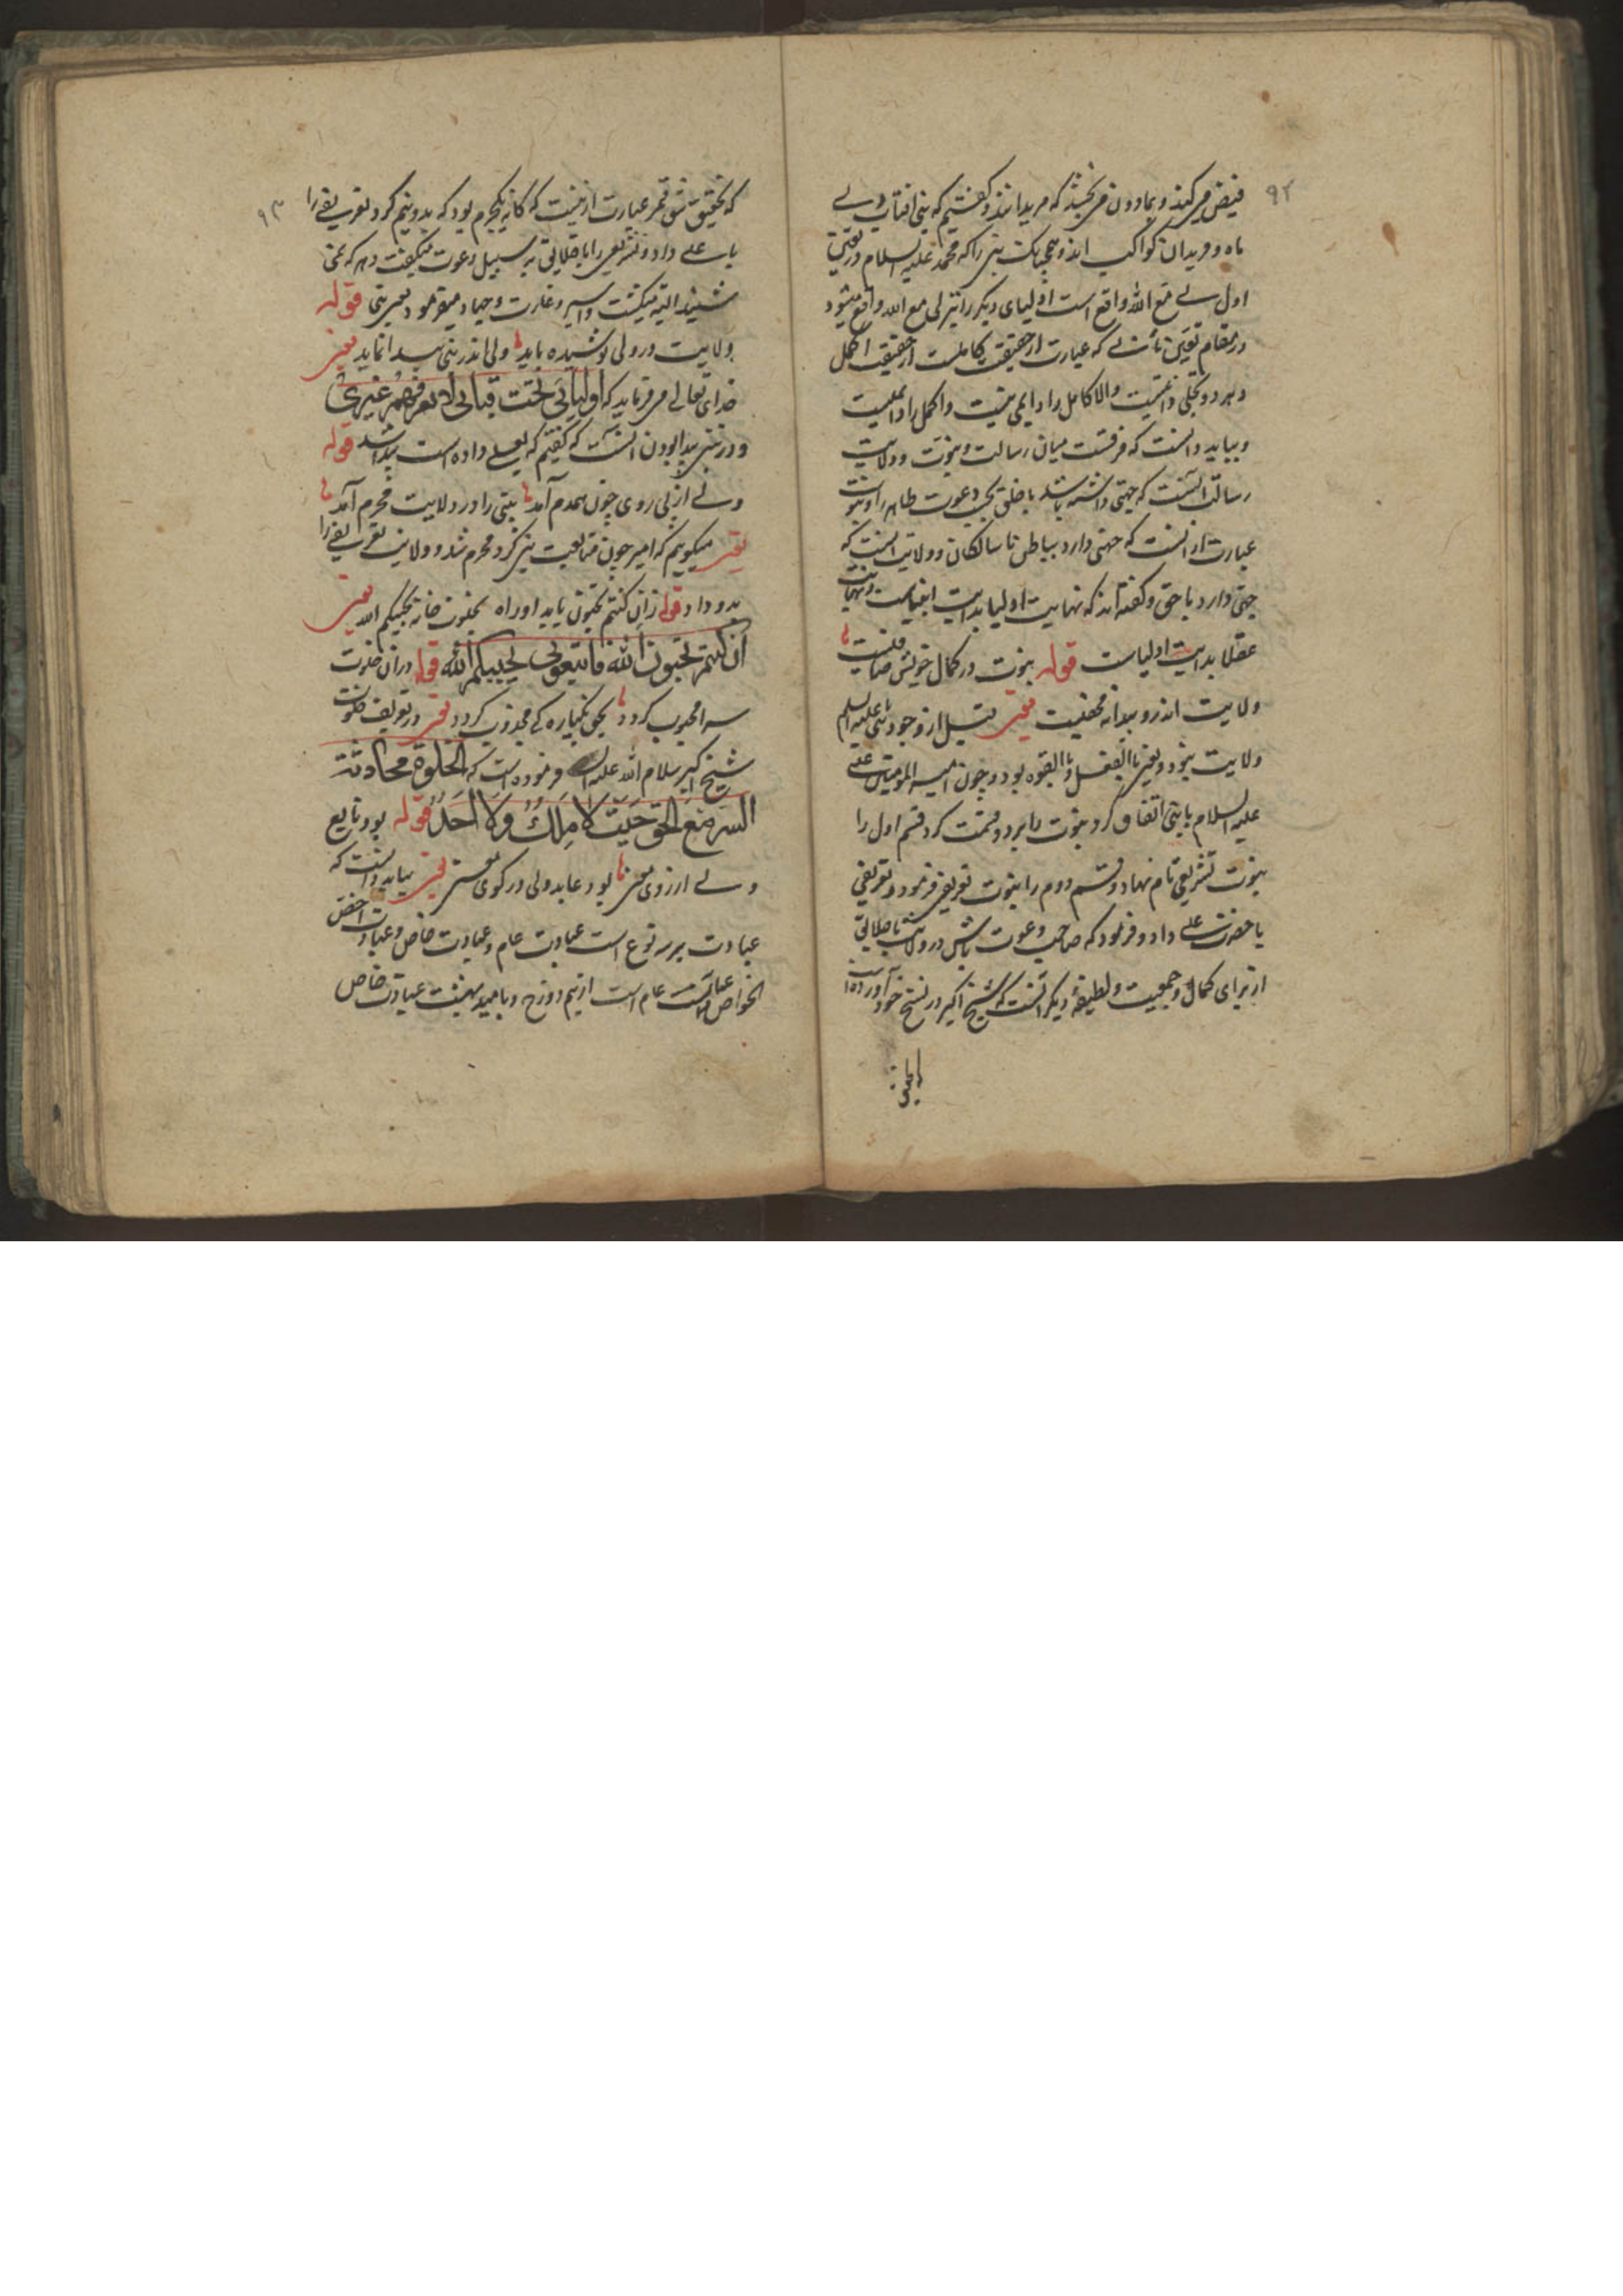 ۹۲
فیض میکیرند و بمادون می بخشند که مریدانند و گفتیم که نبی افتاب و ولی
ماه و مریدان کواکب اند و همچنانک نبی را که محمد علیه السلام در تعین
اول لی مع الله واقع است اولیای دیگر را نیز لی مع الله واقع میشود
در مقام تعین ثانی که عبارت از حقیقت کاملست از حقیقت اکمل
و هر دو تجلی ذاتیست والا کامل را دایمی نیست و اکمل را دایمیست
و بباید دانست که فرقست میان رسالت و نبوت و ولایت
رسالت آنست که جهتی داشته باشد با خلق بحسب دعوت ظاهر و نبوت
عبارت از آنست که جهتی دارد بباطن با سالکان و ولایت آنست که
جهتی دارد با حق و گفته اند که نهایت اولیا بدایت انبیاست و نهایت
عقلا بدایت اولیاست قوله نبوت در کمال خویش صافیست
ولایت اندرو پیدا نه مخفیست یعنی قبل از وجود نبی علیه السلم
ولایت نبود و یعنی بالفعل و بالقوه بود و چون امیر المومنین علی
علیه السلام با نبی اتفاق کرد نبوت را بر دو قسمت کرد قسم اول را
نبوت تشریعی نام نهاد و قسم دوم را نبوت تعریفی فرمود و تعریفی
با حضرت علی داد و فرمود که صاحب دعوت باش در ولایت با خلایق
از برای کمال و جمعیت و لطیفه دیگر آنست که شیخ اکبر در نسخ خود آورده است
که تحقیق
۹۳
که تحقیق شق قمر عبارت ازینست که کانه یکجرم بود که بدو نیم کرد تعریفی را
با علی داد و تشریعی را با خلایق به سبیل دعوت میگفت و هر که نمی
شنید البته میکشت و اسیر و غارت و جهاد میفرمود یعنی نبی قوله
ولایت در ولی پوشیده باید ولی اندر نبی پیدا نماید یعنی
خدای تعالی میفرماید که اولیائی تحت قبابی لا یعرفهم غیری
و در نبی پیدا بودن آنست که گفتیم که بعلی داده است پیدا شد قوله
ولی از پی روی چون همدم آمد نبی را در ولایت محرم آمد
یعنی میگویم که امیر چون متابعت نبی کرد محرم شد و ولایت تعریفی را
بدو داد قوله زان کنتم تحبون یابد او راه بخلوت خانه یحببکم الله یعنی
ان کنتم تحبون الله فاتبعونی یحببکم الله قوله در آن خلوت
سرا محبوب گردد بحق یکباره کی مجذوب گردد یعنی در تعریف خلوت
شیخ اکبر سلام الله علیه فرموده است که الخلوة محادثة
السر مع الحق حیث لا ملک ولا احد قوله بود تابع
ولی از روی معنی بود عابد ولی در کوی معنی یعنی بباید دانست که
عبادت بر سه نوع است عبادت عام و عبادت خاص و عبادت اخص
الخواص عبادت عام است از بیم دوزخ و بامید بهشت عبادت خاص